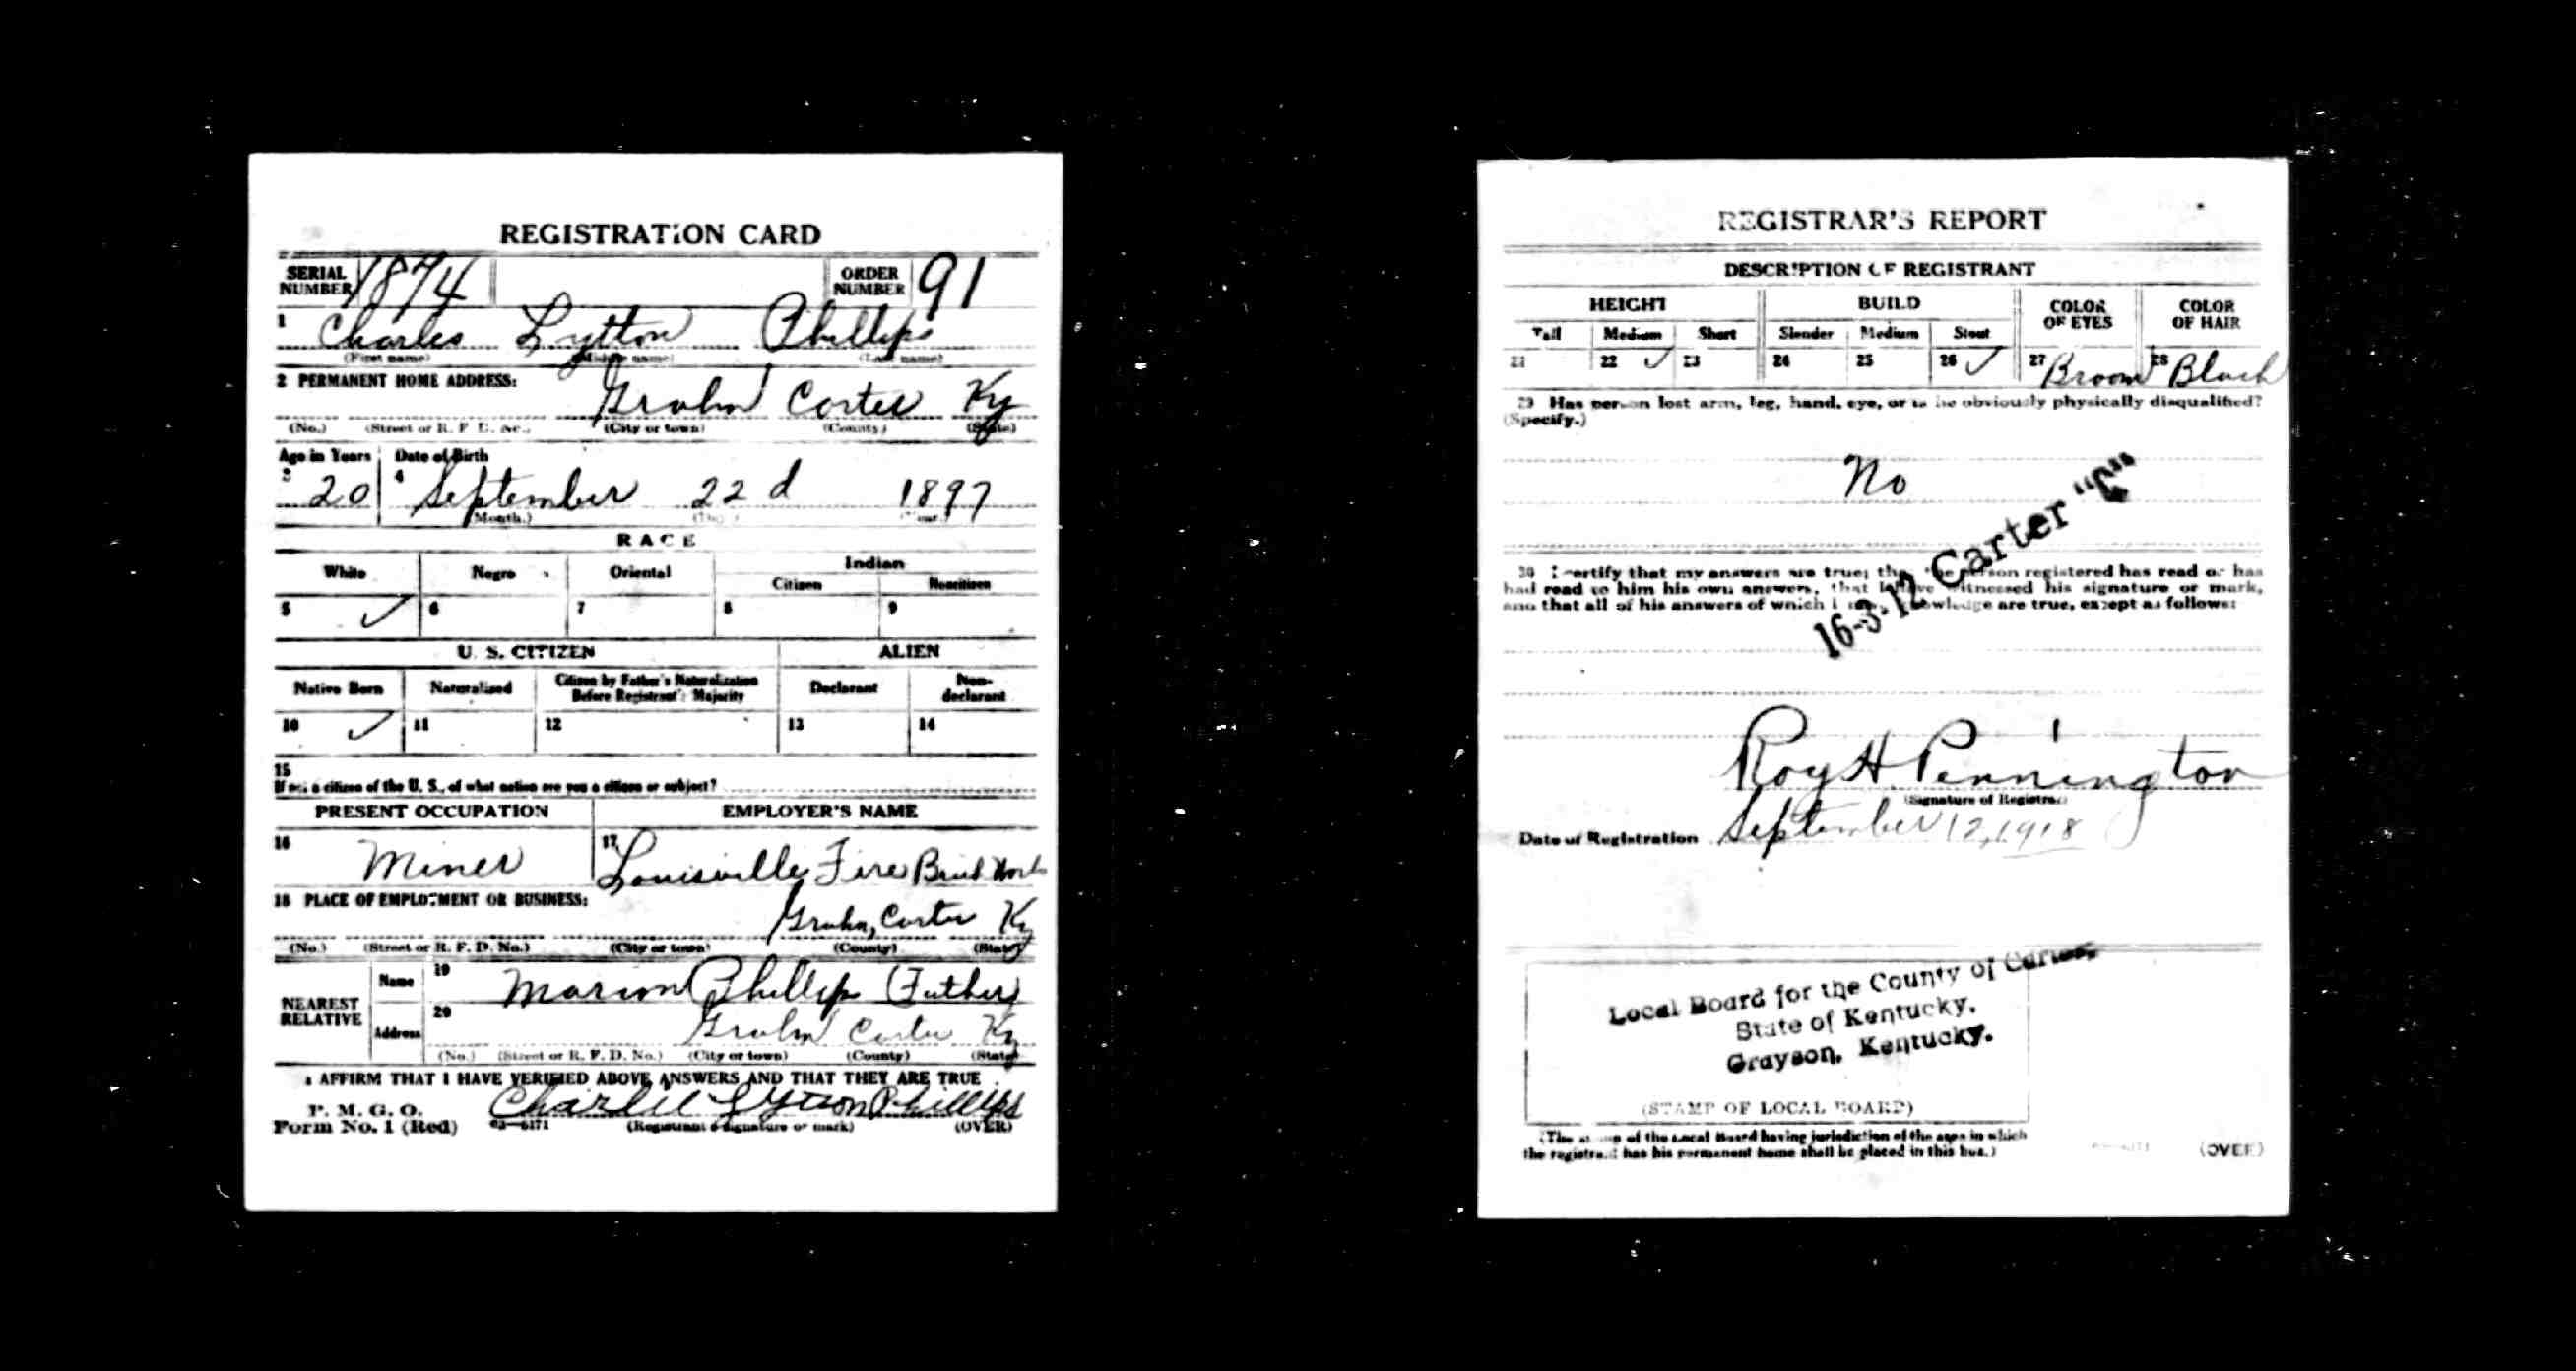 REGISTRATION CARD
SERIAL NUMBER 1874 ORDER NUMBER 91
1 Charles Lytton Phillips
(First name) (Middle name) (Last name)
2 PERMANENT HOME ADDRESS:
Grahn Carter Ky
(No.) (Street or R. F. D. No.) (City or town) (County) (State)
Age in Years Date of Birth
3 20 4 September 22d 1897
(Month.) (Day.) (Year.)
RACE
White Negro Oriental Indian
Citizen Noncitizen
5 ✓ 6 7 8 9
U. S. CITIZEN ALIEN
Native Born Naturalized Citizen by Father's Naturalization Before Registrant's Majority Declarant Non-declarant
10 ✓ 11 12 13 14
15
If not a citizen of the U. S., of what nation are you a citizen or subject?
PRESENT OCCUPATION EMPLOYER'S NAME
16 Miner 17 Louisville Fire Brick Works
18 PLACE OF EMPLOYMENT OR BUSINESS:
Grahn, Carter Ky
(No.) (Street or R. F. D. No.) (City or town) (County) (State)
NEAREST RELATIVE
Name 19 Marion Phillips (Father)
Address 20 Grahn Carter Ky
(No.) (Street or R. F. D. No.) (City or town) (County) (State)
I AFFIRM THAT I HAVE VERIFIED ABOVE ANSWERS AND THAT THEY ARE TRUE
P. M. G. O.
Form No. 1 (Red) 03—6171 Charlie Lytton Phillips
(Registrant's signature or mark) (OVER)
REGISTRAR'S REPORT
DESCRIPTION OF REGISTRANT
HEIGHT BUILD COLOR OF EYES COLOR OF HAIR
Tall Medium Short Slender Medium Stout
21 22 ✓ 23 24 25 26 ✓ 27 Brown 28 Black
29 Has person lost arm, leg, hand, eye, or is he obviously physically disqualified?
(Specify.)
No
16-3-12 Carter "C"
30 I certify that my answers are true; that the person registered has read or has
had read to him his own answers, that I have witnessed his signature or mark,
and that all of his answers of which I have knowledge are true, except as follows:
Roy H Pennington
(Signature of Registrar)
Date of Registration September 12, 1918
Local Board for the County of Carter,
State of Kentucky,
Grayson, Kentucky.
(STAMP OF LOCAL BOARD)
(The stamp of the Local Board having jurisdiction of the area in which
the registrant has his permanent home shall be placed in this box.)
(OVER)